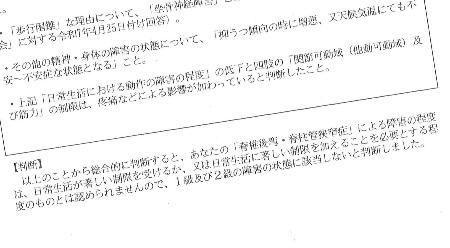 ・「歩行困難」な理由について、「坐骨神経障害」
会」に対する令和7年4月25日付け回答）。
・その他の精神・身体の障害の状態について、「抑うつ傾向の時に悶悪、又天候気温にても不
安～不安症な状態となる」こと。
・上記「日常生活における動作の障害の程度」の低下と四肢の「関節可動域（他動可動域）及
び筋力」の制限は、疼痛などによる影響が加わっていると判断したこと。
【判断】
以上のことから総合的に判断すると、あなたの「脊椎後弯・脊柱管狭窄症」による障害の程度
は、日常生活が著しい制限を受けるか、又は日常生活に著しい制限を加えることを必要とする程
度のものとは認められませんので、1級及び2級の障害の状態に該当しないと判断しました。